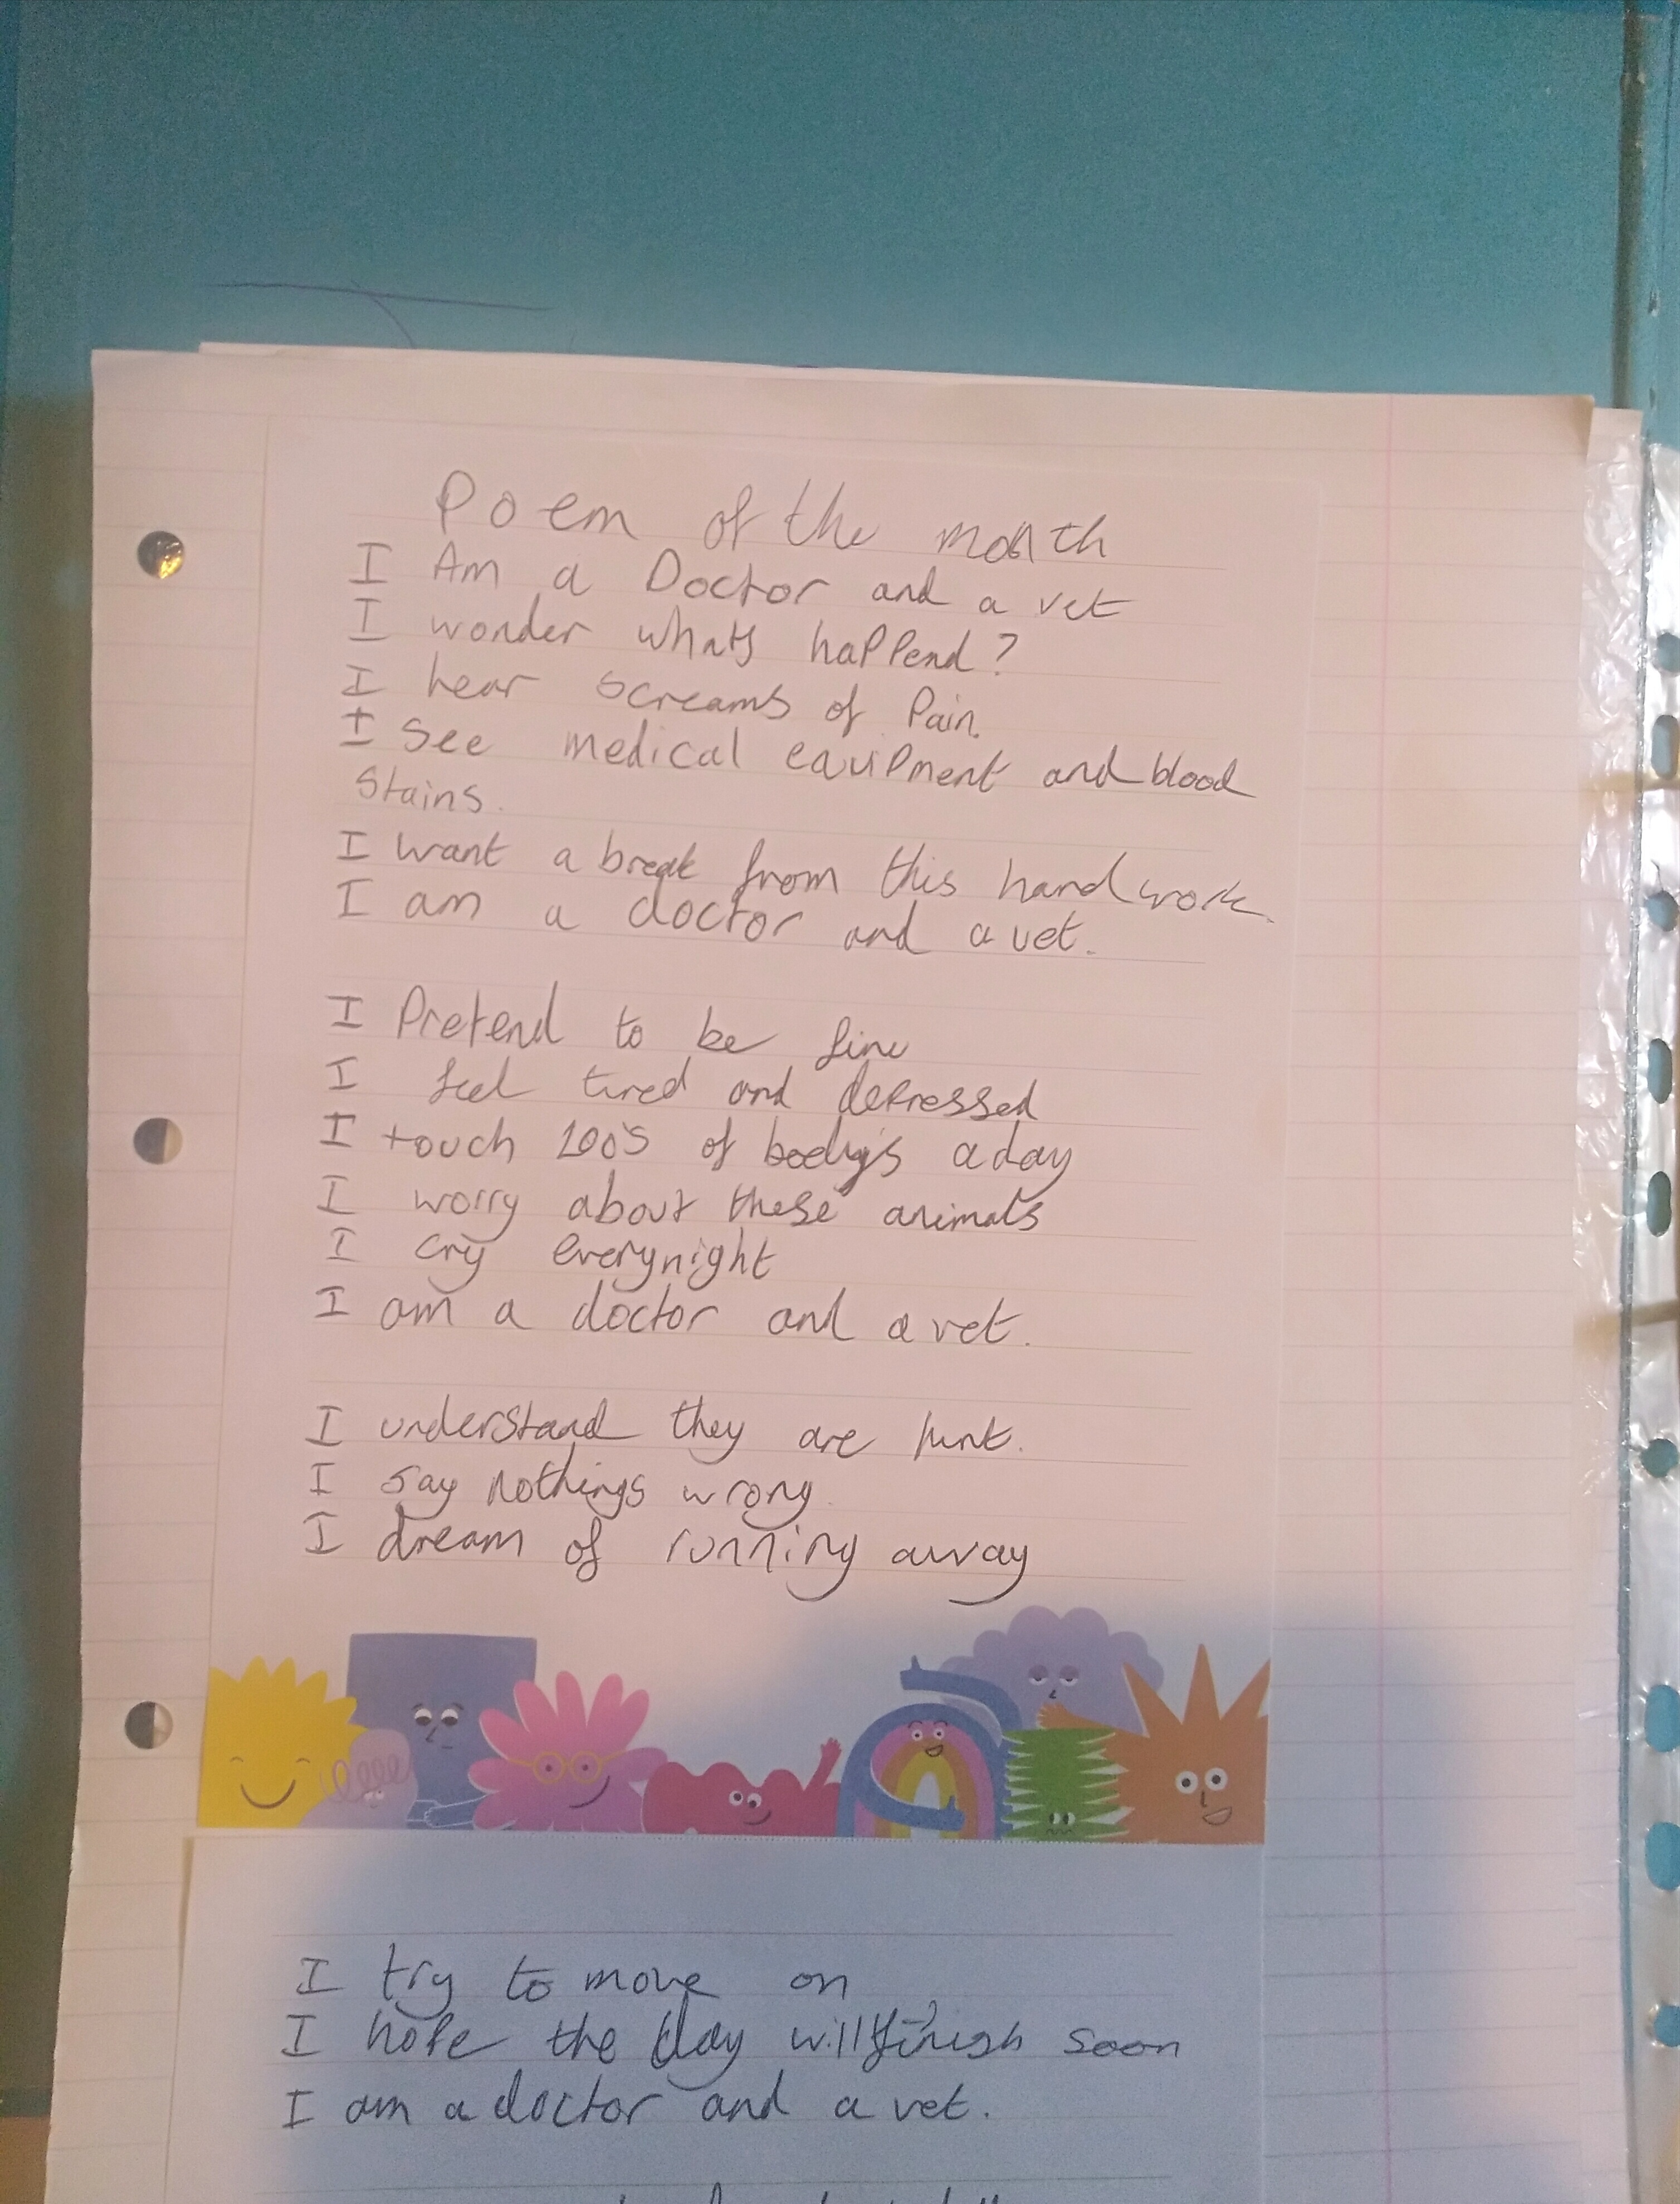 Poem of the month
I Am a Doctor and a vet
I wonder whats happend?
I hear screams of Pain.
I see medical equipment and blood
stains.
I want a break from this hard work.
I am a doctor and a vet.
I Pretend to be fine
I feel tired and depressed
I touch 100's of body's a day
I worry about these animals
I cry everynight
I am a doctor and a vet.
I understand they are hurt.
I say nothings wrong.
I dream of running away
I try to move on
I hope the day will finish soon
I am a doctor and a vet.